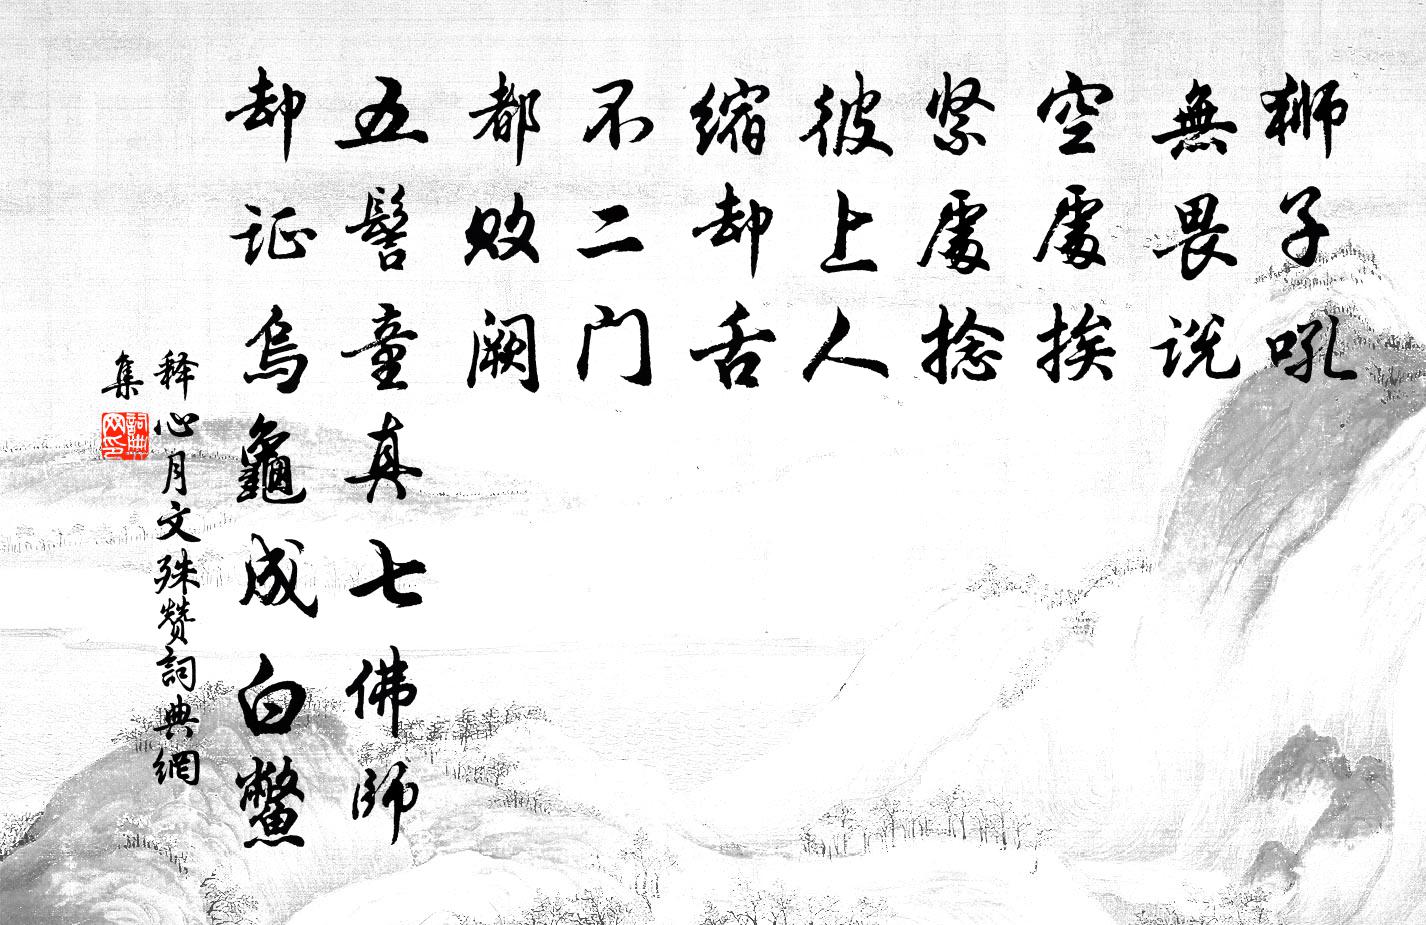 狮子吼
無畏说
空處挨
紧處捻
彼上人
缩却舌
不二门
都败阙
五髻童真七佛师
却证烏龜成白鱉
释心月文殊赞詞典網
集
詞典網印